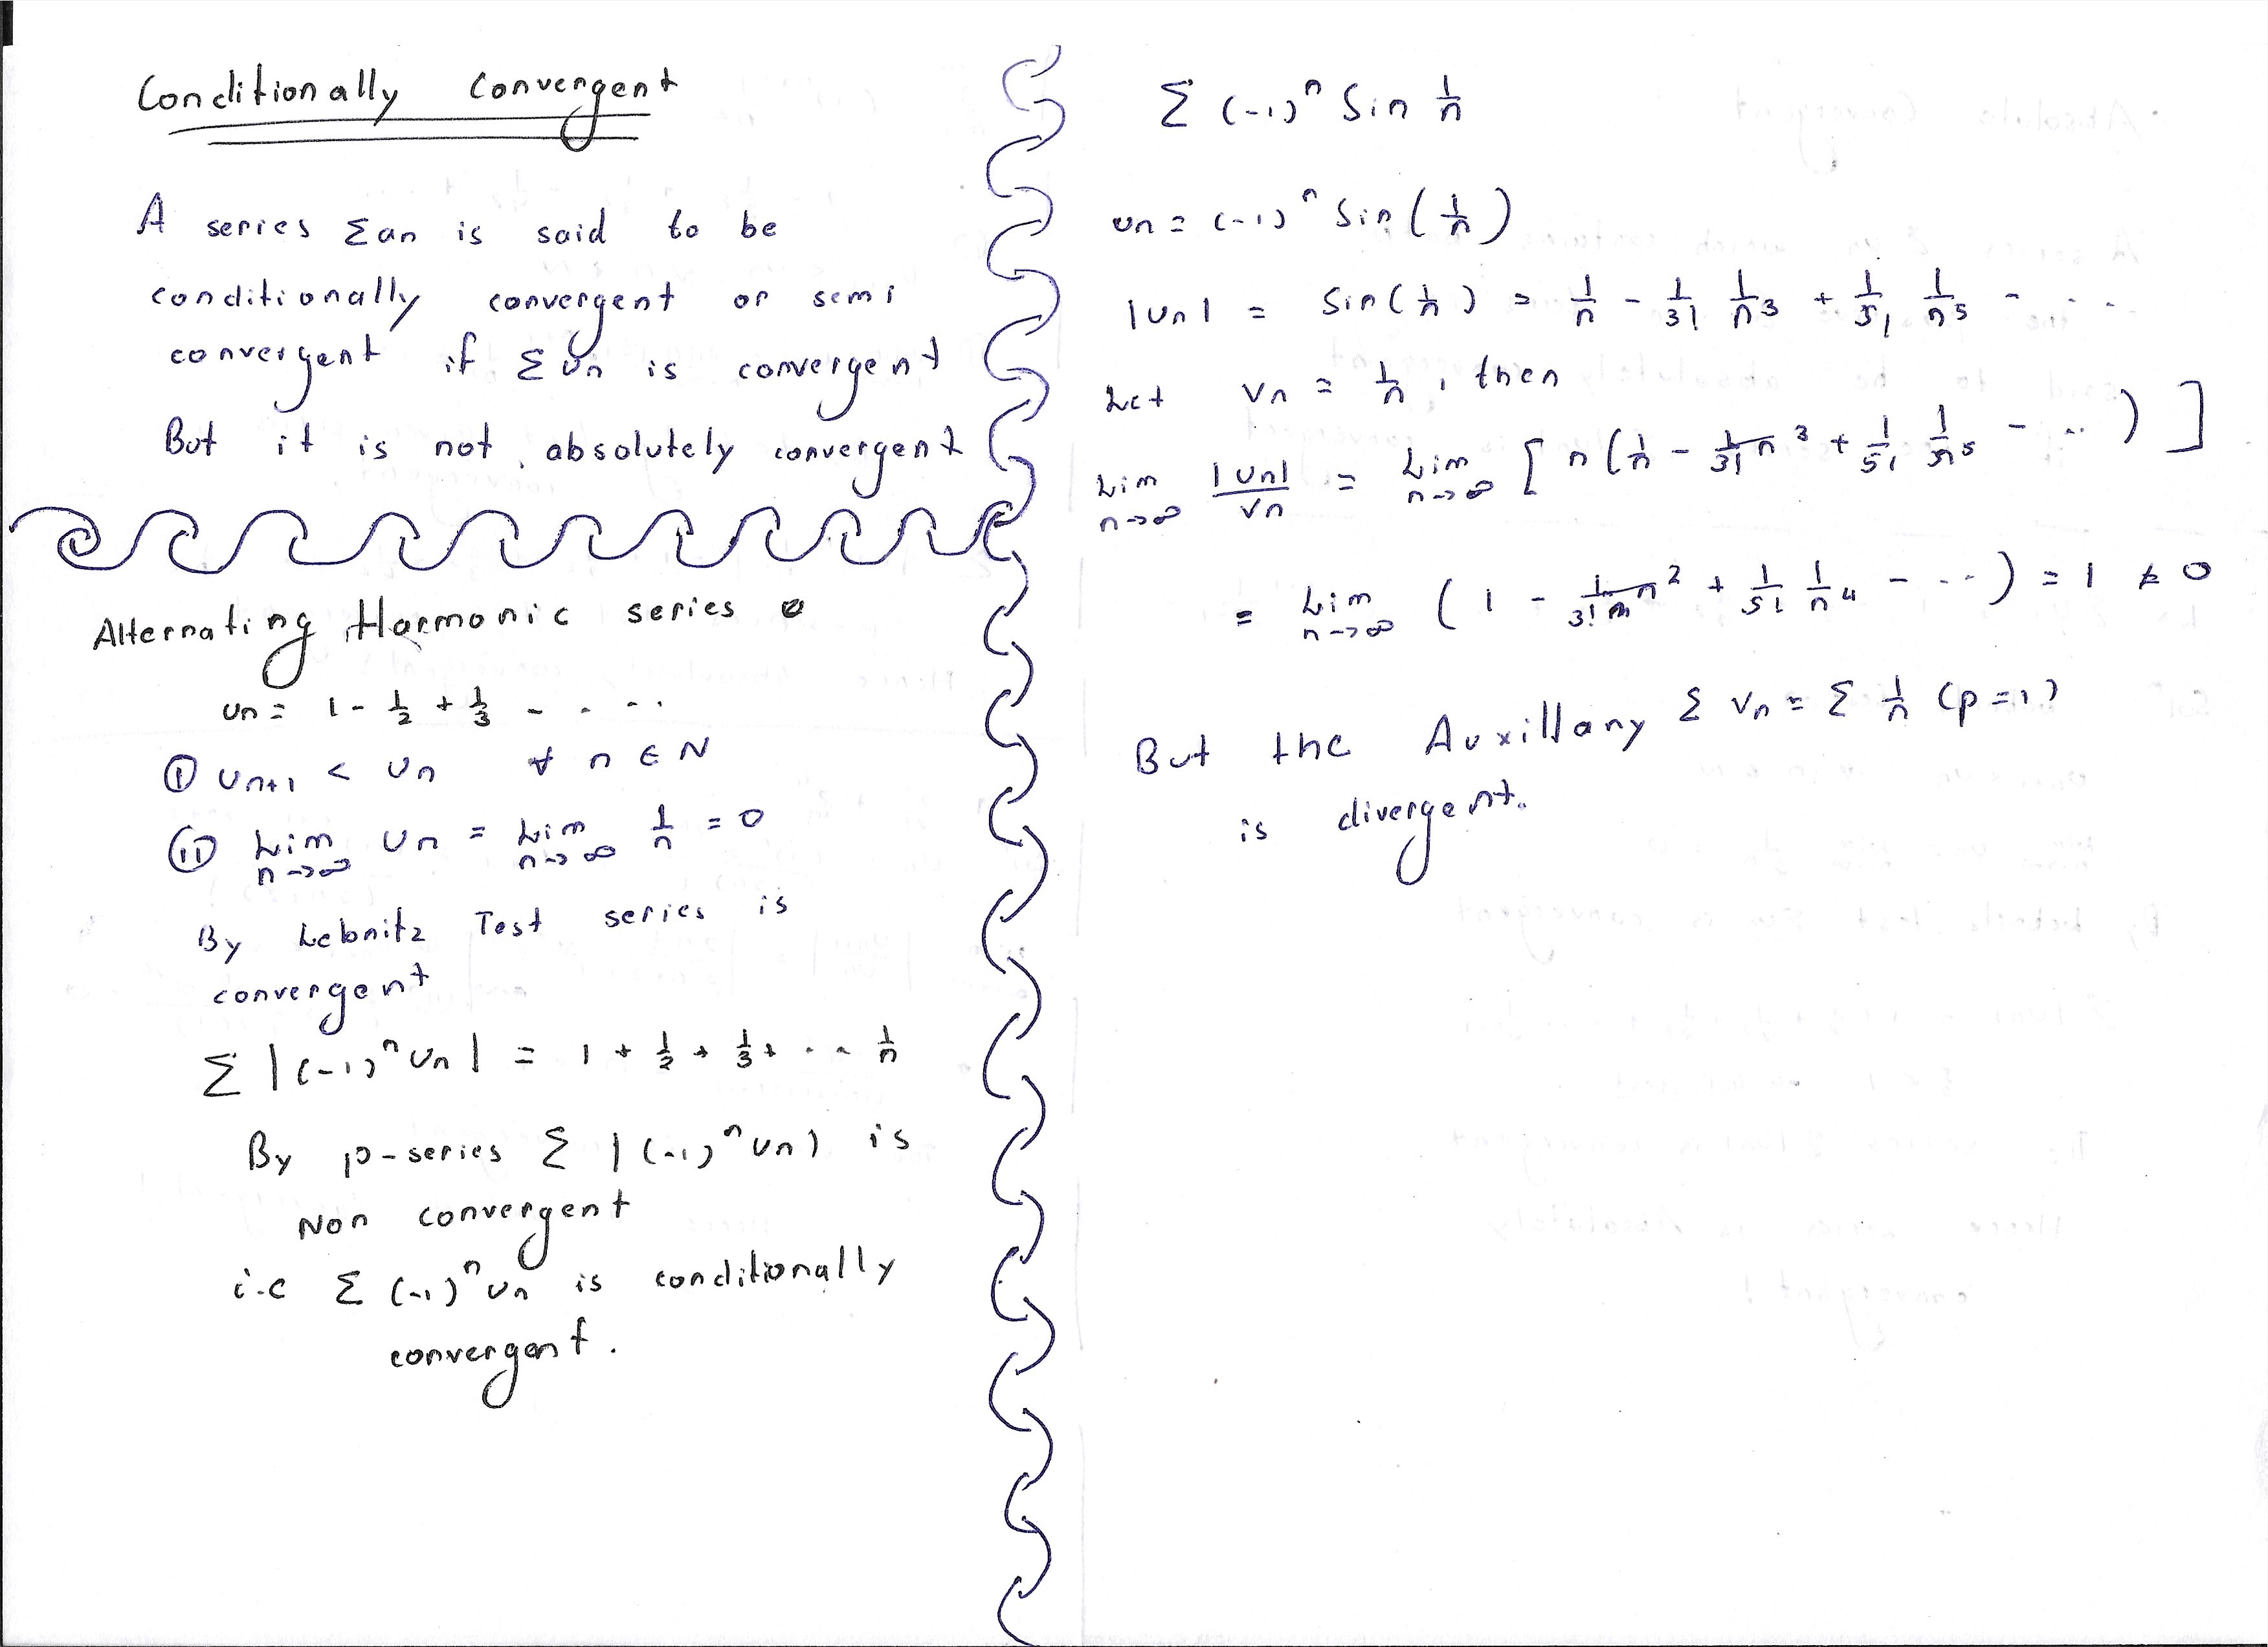 Conditionally Convergent
A series Σan is said to be
conditionally convergent or semi
convergent if Σun is convergent
But it is not absolutely convergent
Alternating Harmonic series
un = 1 - 1/2 + 1/3 - - - -
(i) un+1 < un ∀ n ∈ N
(ii) Lim n→∞ un = Lim n→∞ 1/n = 0
By Lebnitz Test series is
convergent
Σ |(-1)^n un| = 1 + 1/2 + 1/3 + . . . 1/n
By p-series Σ |(-1)^n un) is
Non convergent
i.e Σ (-1)^n un is conditionally
convergent.
Σ (-1)^n Sin 1/n
un = (-1)^n Sin (1/n)
|un| = Sin(1/n) = 1/n - 1/3! 1/n3 + 1/5! 1/n5 - . . .
Let vn = 1/n , then
Lim n→∞ |un|/vn = Lim n→∞ [ n (1/n - 1/3!n^3 + 1/5! 1/n5 - . . ) ]
= Lim n→∞ ( 1 - 1/3!n^2 + 1/5! 1/n4 - . . . ) = 1 ≠ 0
But the Auxillary Σ vn = Σ 1/n (p=1)
is divergent.